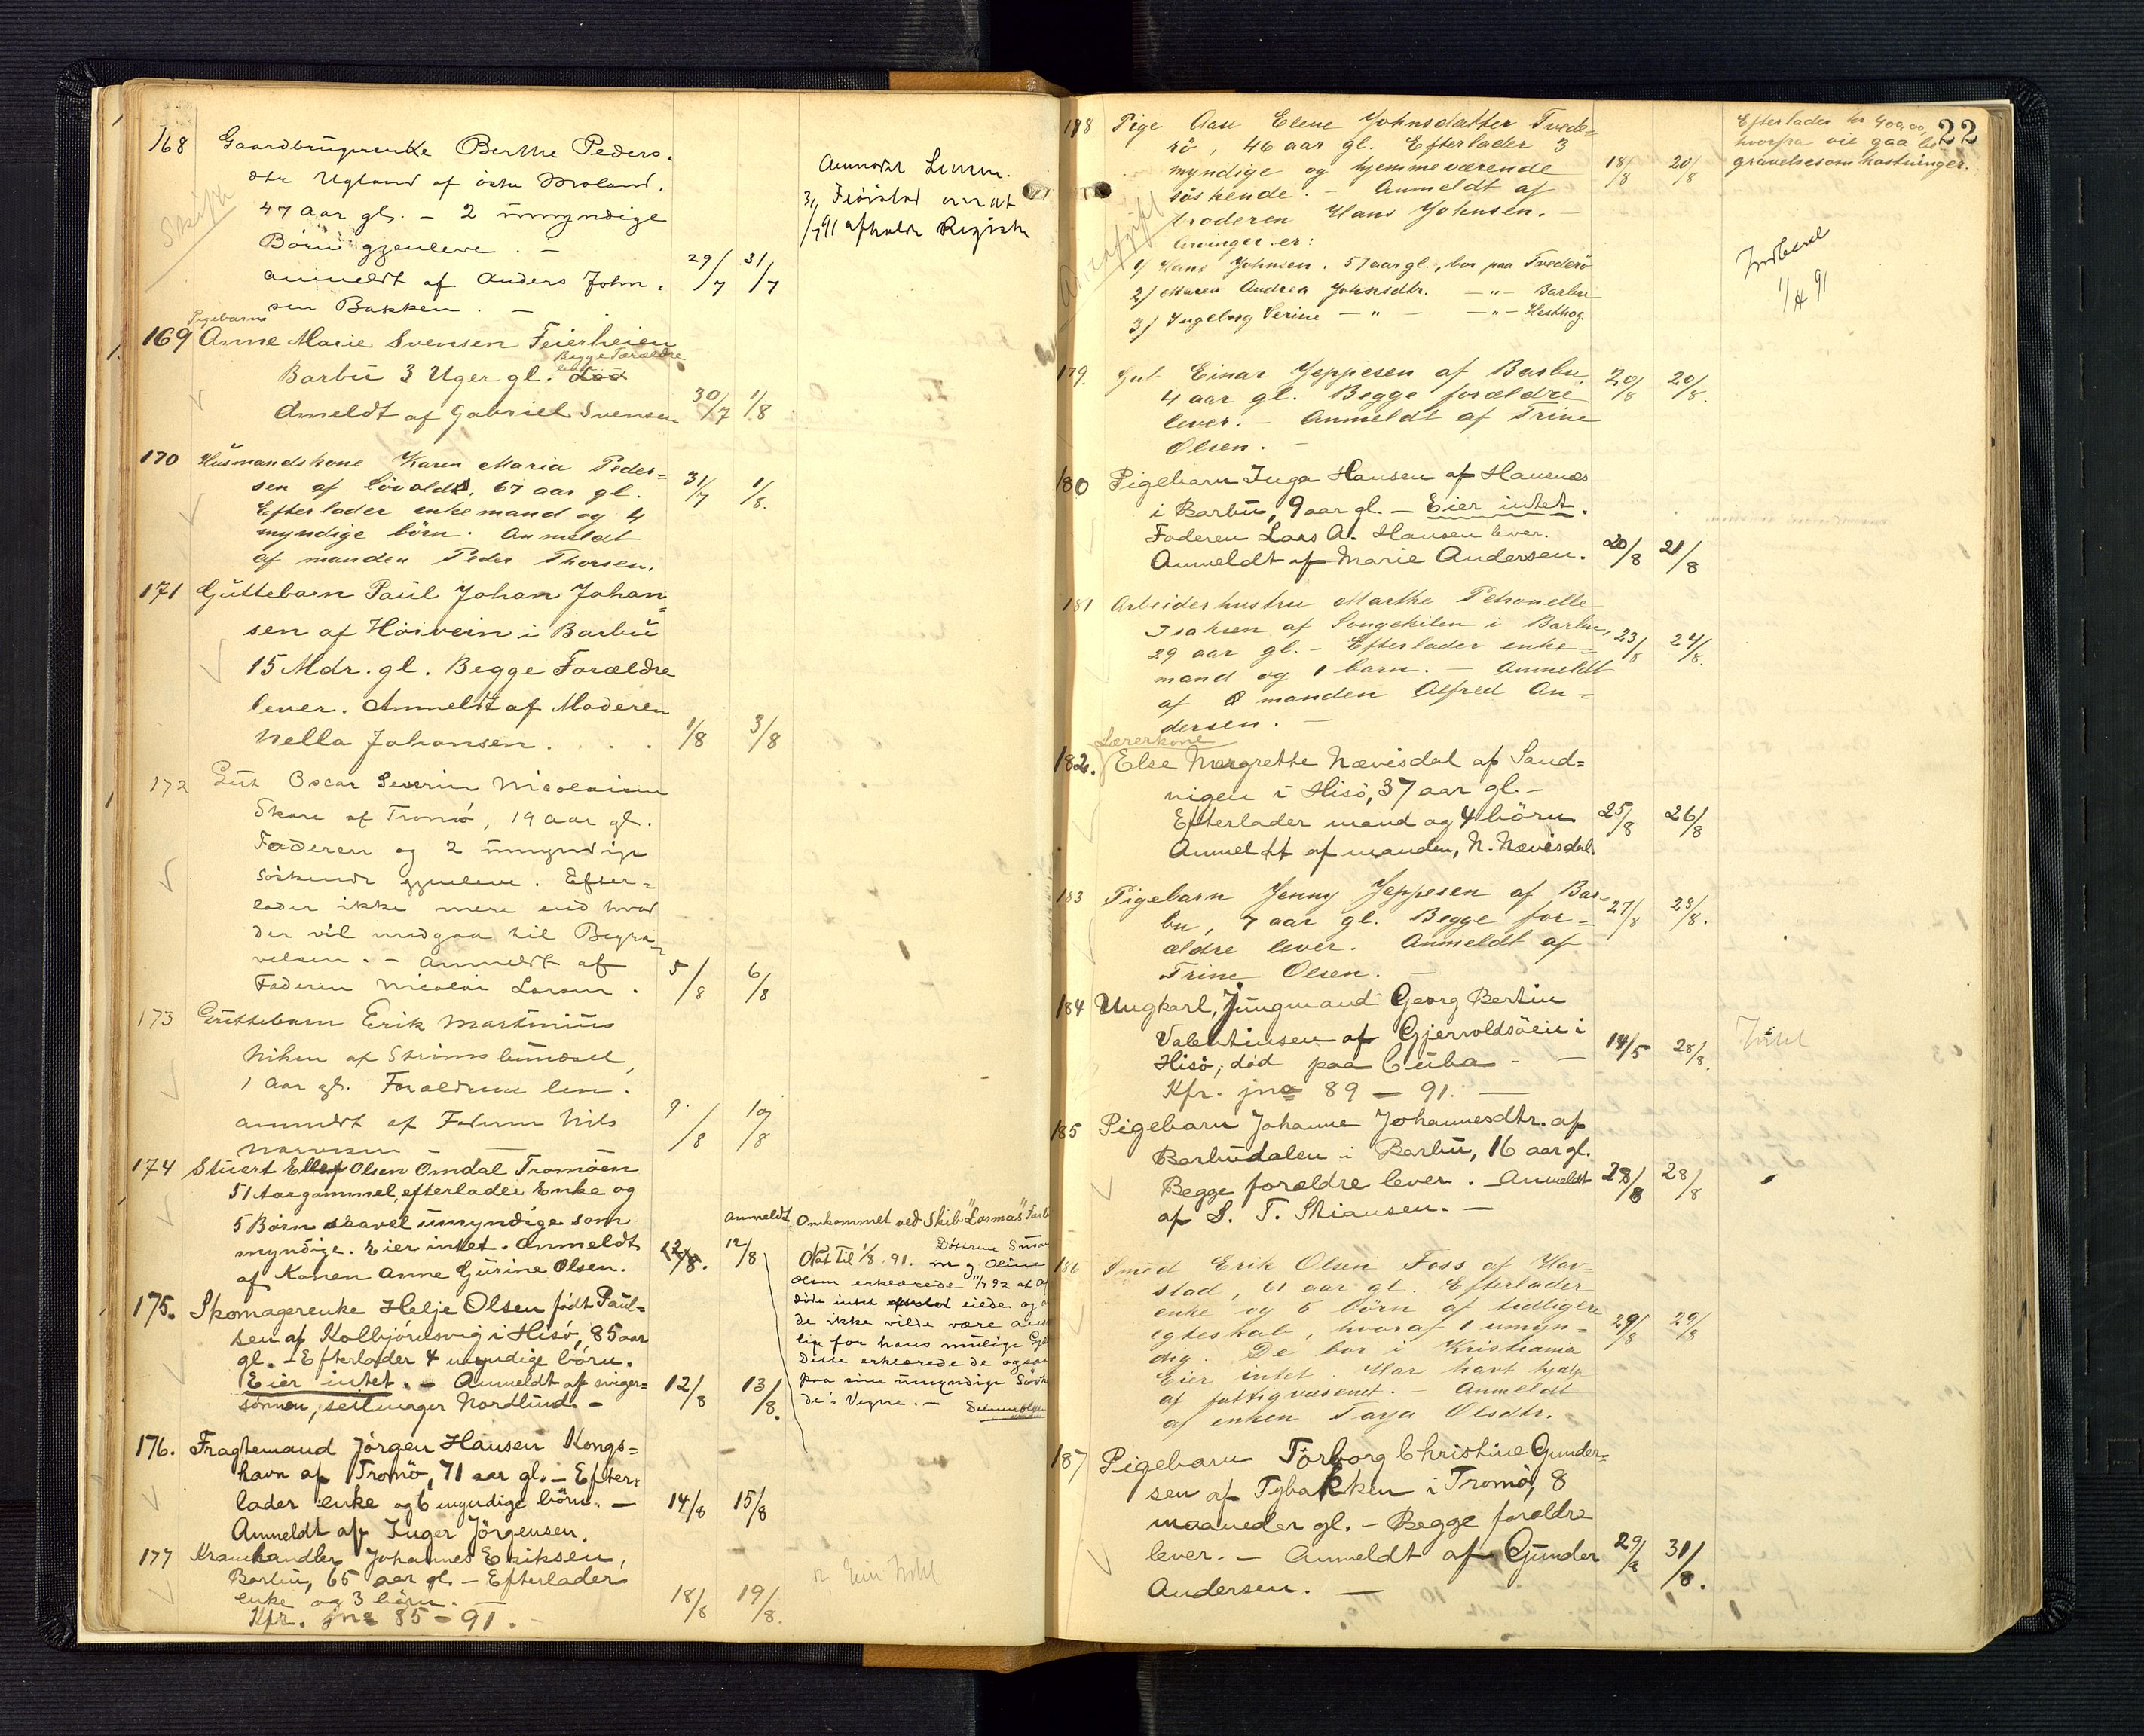 168 Gaardbrugerenke Berthe Peders.
dtr Ugland af östre Moland.
47 aar gl. – 2 umyndige
Börn gjenleve. –
anmeldt af Anders John.
sen Bakken. – 29/7 31/7
Skifte
3/7 91 afholdt Registr
Pigebarn
169 Anne Marie Svensen Feierheien
Begge Forældre
Barbu 3 Uger gl. lever
Anmeldt af Gabriel Svensen 30/7 1/8
170 Husmandskone Karen Maria Peder=
sen af Lövold, 67 aar gl. 31/7 1/8.
Efterlader enkemand og 4
myndige börn. Anmeldt
af manden Peder Thorsen.
171 Guttebarn Paul Johan Johan=
sen af Höivein i Barbu
15 Mdr. gl. Begge Forældre
lever. Anmeldt af Moderen
Nella Johansen. . . . 1/8 3/8
172 Gut Oscar Severin Nicolaisen
Skare af Tromö, 19 aar gl.
Faderen og 2 umyndige
Söskende gjenleve. Efter=
lader ikke mere end hvad
der vil medgaa til Begra=
velsen. – Anmeldt af
Faderen Nicolai Larsen. 5/8 6/8
173 Guttebarn Erik Martinius
Nilsen af Strömsbundsel,
1 Aar gl. Forældrene leve.
anmeldt af Faderen Nils
9/8 10/8
174 Stuert Ellef Olsen Omdal Tromöen
51 Aar gammel, efterlader Enke og
5 Börn saavel umyndige som
myndige. Eier intet. Anmeldt
af Konen Anne Gurine Olsen. 12/8. 12/8
anmeldt Omkommet ved Skib "Lorma's" Forl
Nat til 1/8. 91.
Olsen erklærede 11/7 92 at
döde intet eiede og
de ikke vilde være
lig for hans mulige
disse erklærede de ogsaa
paa sine umyndige
de's Vegne. –
175. Skomagerenke Helje Olsen födt Paul=
sen af Kolbjörnsvig i Hisö, 85 aar
gl. – Efterlader 4 myndige börn.
Eier intet. – Anmeldt af sviger=
sönnen, seilmager Nordlund. – 12/8 13/8.
176. Fragtemand Jörgen Hansen Kongs=
havn af Tromö, 71 aar gl. – Efter=
lader enke og 6 myndige börn. –
Anmeldt af Inger Jörgensen. 14/8 15/8
177 Kramhandler Johannes Eriksen,
Barbu, 65 aar gl. – Efterlader
enke og 3 börn.
Kfr. jno 85 – 91. – 18/8 19/8.
22
178 Pige Aase Elene Johnsdatter Tvede=
rö, 46 aar gl. Efterlader 3
myndige og hjemmeværende
söskende. – Anmeldt af
broderen Hans Johnsen. –
Arvinger er:
1/ Hans Johnsen. 57 aar gl., bor paa Tvederö
2/ Maren Andrea Johnsdtr. – " – Barbu
3/ Ingeborg Serine – " – – " – Hesthag.
18/8 20/8
Efterlader kr 400,00,
hvorfra vil gaa be
gravelsesomkostninger.
Indberet
Arveafgift
179. Gut Einar Jeppesen af Barbu, 20/8 20/8.
4 aar gl. Begge forældre
lever. – Anmeldt af Trine
Olsen. –
180 Pigebarn Inga Hansen af Hansnæs
i Barbu, 9 aar gl. – Eier intet.
Faderen Lars A. Hansen lever.
Anmeldt af Marie Andersen. 20/8 21/8
181 Arbeiderhustru Marthe Petronelle
Isaksen af Songekilen i Barbu, 23/8 24/8.
29 aar gl. – Efterlader enke=
mand og 1 barn. – Anmeldt
af manden Alfred An=
dersen. –
Lærerkone
182. Else Margrethe Nævisdal af Sand=
vigen i Hisö, 37 aar gl. –
Efterlader mand og 4 börn 25/8 26/8
Anmeldt af manden, N. Nævisdal.
183 Pigebarn Jenny Jeppesen af Bar= 27/8 28/8.
bu, 7 aar gl. Begge for=
ældre lever. Anmeldt af
Trine Olsen. –
184 Ungkarl, Jungmand Georg Bertin
Valentinsen af Gjervoldsöen i
Hisö, död paa Cuba – – 14/5 28/8.
Kfr. jno 89 – 91. –
185 Pigebarn Johanne Johannesdtr. af
Barbudalen i Barbu, 16 aar gl.
Begge forældre lever. – Anmeldt 28/8 28/8
af S. T. Stiansen. –
186 Smed Erik Olsen Foss af Hav=
stad, 61 aar gl. Efterlader
enke og 5 börn af tidligere
egteskab, hvoraf 1 umyn= 29/8 29/8
dig. De bor i Kristiania
Eier intet. Har havt hjælp
af fattigvæsenet. – Anmeldt
af enken Tarja Olsdtr.
187 Pigebarn Torborg Christine Gunder=
sen af Tybakken i Tromö, 8
maaneder gl. – Begge forældre
lever. – Anmeldt af Gunder 29/8 31/8.
Andersen. –